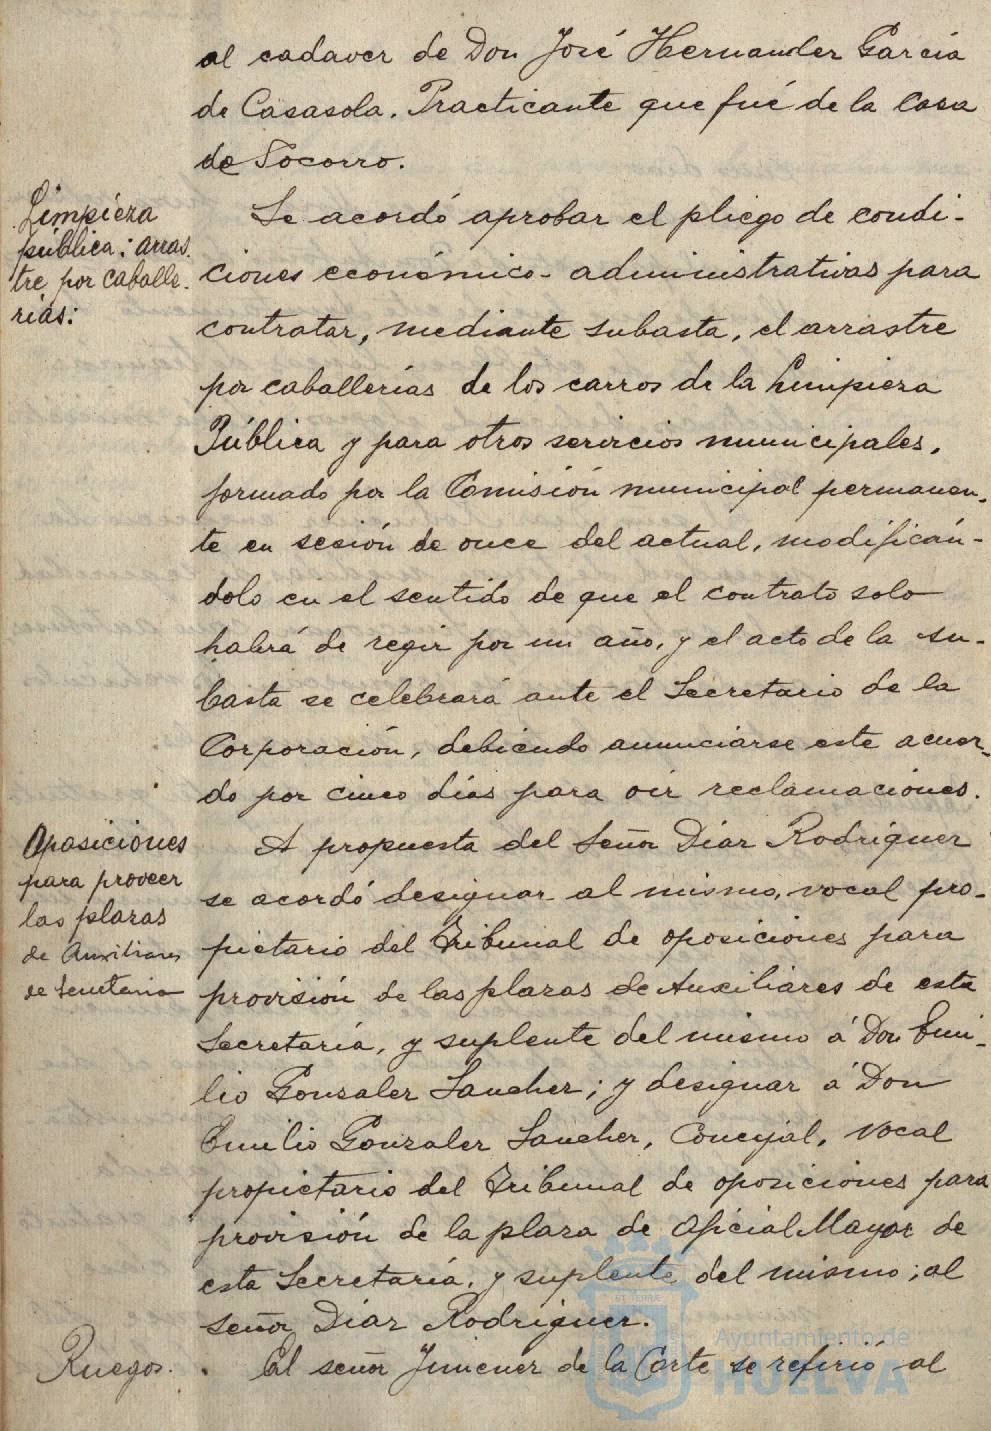 al cadaver de Don José Hernandez García
de Casasola. Practicante que fué de la Casa
de Socorro.
Limpieza
pública: arras.
tre por caballe.
rias:
Se acordó aprobar el pliego de condi-
ciones económico-administrativas para
contratar, mediante subasta, el arrastre
por caballerías de los carros de la Limpieza
Pública y para otros servicios municipales,
formado por la Comisión municipal permanen-
te en sesión de once del actual, modificán-
dolo en el sentido de que el contrato solo
habrá de regir por un año, y el acto de la su-
basta se celebrará ante el Secretario de la
Corporación, debiendo anunciarse este acuer-
do por cinco días para oir reclamaciones.
Oposiciones
para proveer
las plazas
de Auxiliares
de Secretaria
A propuesta del Señor Díaz Rodríguez
se acordó designar al mismo, vocal pro-
pietario del Tribunal de oposiciones para
provisión de las plazas de Auxiliares de esta
Secretaría, y suplente del mismo á Don Emi-
lio Gonzalez Sanchez; y designar á Don
Emilio Gonzalez Sanchez, Concejal, vocal
propietario del Tribunal de oposiciones para
provisión de la plaza de Oficial Mayor de
esta Secretaría, y suplente del mismo; al
señor Díaz Rodriguez.
Ruegos.
El señor Jimenez de la Corte se refirió al
Ayuntamiento de
HUELVA